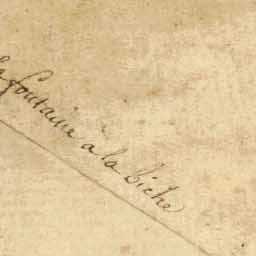 la fontaine a la biche